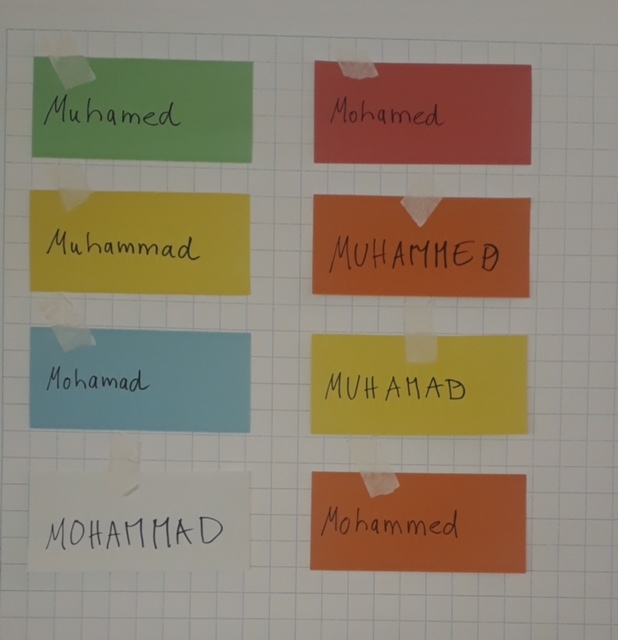 Muhamed
Mohamed
Muhammad
MUHAMMED
Mohamad
MUHAMAD
MOHAMMAD
Mohammed